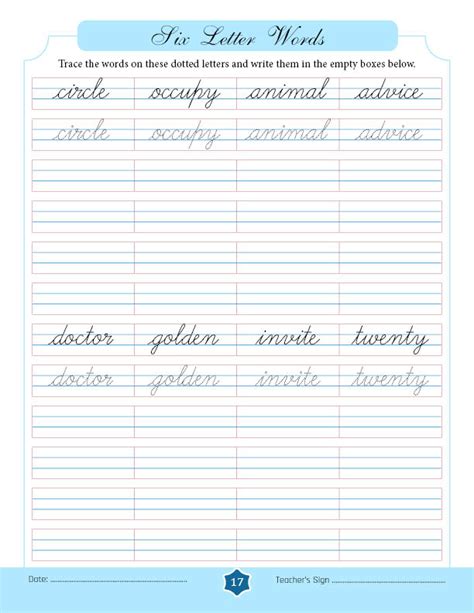 Six Letter Words
Trace the words on these dotted letters and write them in the empty boxes below.
circle occupy animal advice
circle occupy animal advice
doctor golden invite twenty
doctor golden invite twenty
Date: ........................ 17 Teacher's Sign ........................